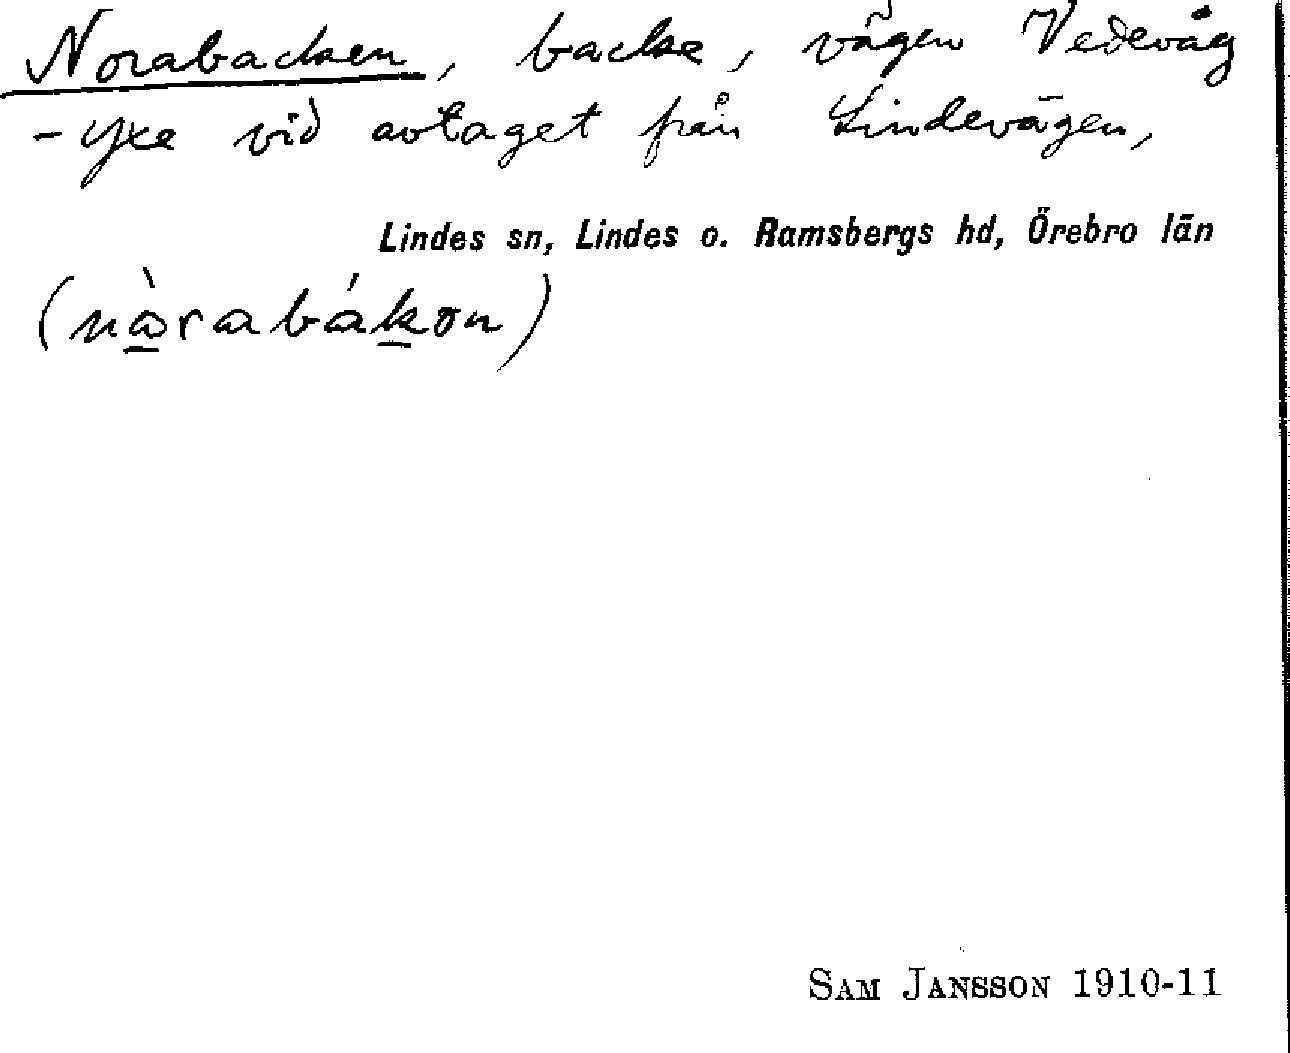 Norabacken, backe, vägen Vedevåg
- Yxe vid avtaget från Lindevägen,
Lindes sn, Lindes o. Ramsbergs hd, Örebro län
(nàrabákon)
SAM JANSSON 1910-11